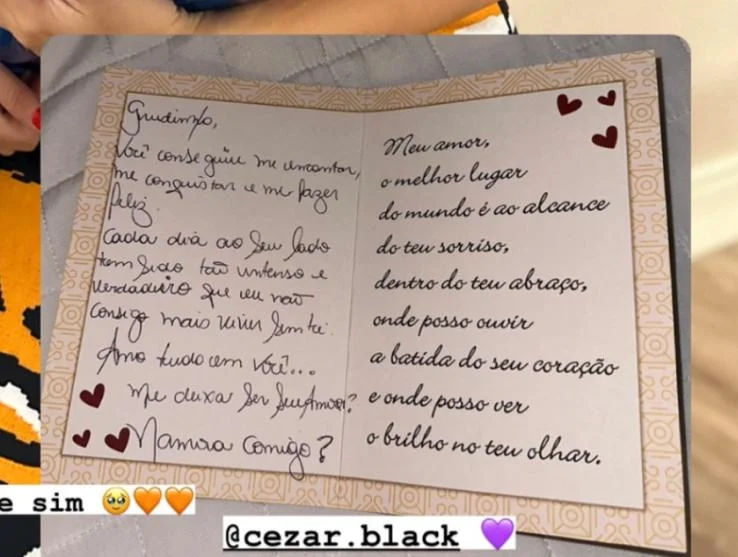 Grudinho,
Você conseguiu me encantar,
me conquistar e me fazer
feliz.
Cada dia ao seu lado
tem sido tão intenso e
verdadeiro que eu não
consigo mais viver sem ti.
Amo tudo em você...
Me deixa ser seu Amor?
Namora Comigo?
Meu amor,
o melhor lugar
do mundo é ao alcance
do teu sorriso,
dentro do teu abraço,
onde posso ouvir
a batida do seu coração
e onde posso ver
o brilho no teu olhar.
e sim 🥹🧡🧡
@cezar.black 💜